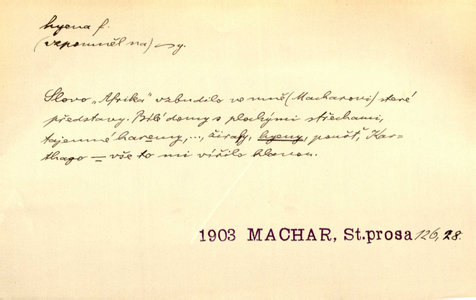 hyena f.
(vzpomněl na) ~y.
Slovo „Afrika" vzbudilo ve mně (Macharovi) staré
představy. Bílé domy s plochými střechami,
tajemné haremy, ..., žirafy, hyeny, poušť, Kar-
thago – vše to mi vířilo hlavou.
1903 MACHAR, St.prosa 126, 28.